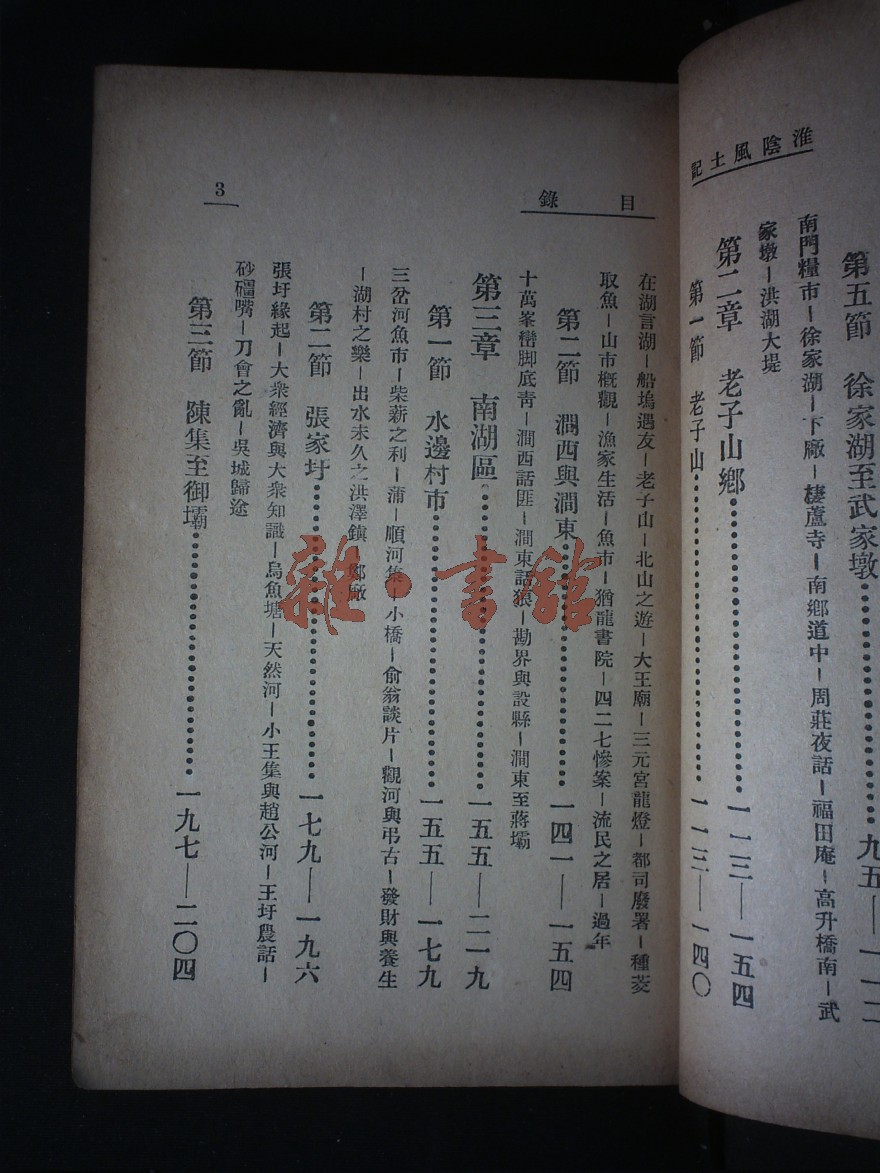 淮陰風土記
第五節　徐家湖至武家墩………九五—一一二
南門糧市—徐家湖—下廠—棲蘆寺—南鄉道中—周莊夜話—福田庵—高升橋南—武
家墩—洪湖大堤
第二章　老子山鄉………一一三—一五四
第一節　老子山………一一三—一四〇
目錄
在湖言湖—船塢遇友—老子山—北山之遊—大王廟—三元宮龍燈—都司廢署—種菱
取魚—山市概觀—漁家生活—魚市—猶龍書院—四二七慘案—流民之居—過年
第二節　澗西與澗東………一四一—一五四
十萬峯巒脚底青—澗西話匪—澗東話狼—勘界與設縣—澗東至蔣壩
第三章　南湖區………一五五—二一九
第一節　水邊村市………一五五—一七九
三岔河魚市—柴薪之利—蒲—順河集—小橋—俞翁談片—觀河與弔古—發財與養生
—湖村之樂—出水未久之洪澤鎮—鄭廠
第二節　張家圩………一七九—一九六
張圩緣起—大衆經濟與大衆知識—烏魚塘—天然河—小王集與趙公河—王圩農話—
砂礓嘴—刀會之亂—吳城歸途
第三節　陳集至御壩………一九七—二〇四
3
雜·書館